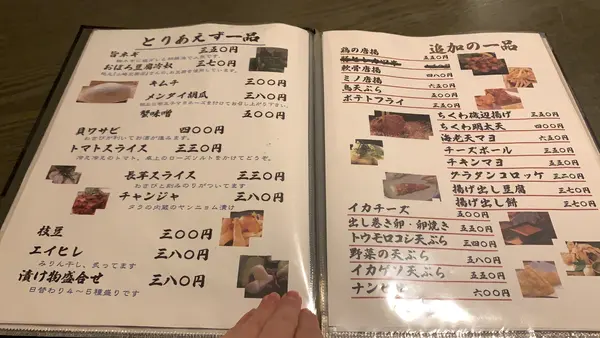 とりあえず一品
旨ネギ 三五〇円
おぼろ豆腐冷奴 三七〇円
キムチ 三〇〇円
メンタイ胡瓜 三八〇円
蟹味噌 五〇〇円
貝ワサビ 四〇〇円
わさびが利いてお酒が進みます。
トマトスライス 三三〇円
冷え冷えのトマト、卓上のローズソルトをかけてどうぞ。
長芋スライス 三三〇円
わさびと刻みのりがついてます
チャンジャ 三八〇円
タラの内臓のヤンニョム漬け
枝豆 三〇〇円
エイヒレ 三八〇円
みりん干し、炙ってます
漬け物盛合せ 三八〇円
日替わり4~5種盛りです
追加の一品
鶏の唐揚
軟骨唐揚 四八〇円
ミノ唐揚
鳥天ぷら
ポテトフライ
ちくわ磯辺揚げ 三五〇円
ちくわ明太天 四〇〇円
海老天マヨ 六五〇円
チーズボール 五三〇円
チキンマヨ 五五〇円
グラタンコロッケ
揚げ出し豆腐 三七〇円
揚げ出し餅 三七〇円
イカチーズ 五五〇円
出し巻き卵・卵焼き
トウモロコシ天ぷら
野菜の天ぷら
イカゲソ天ぷら 五五〇円
ナンピザ 六〇〇円